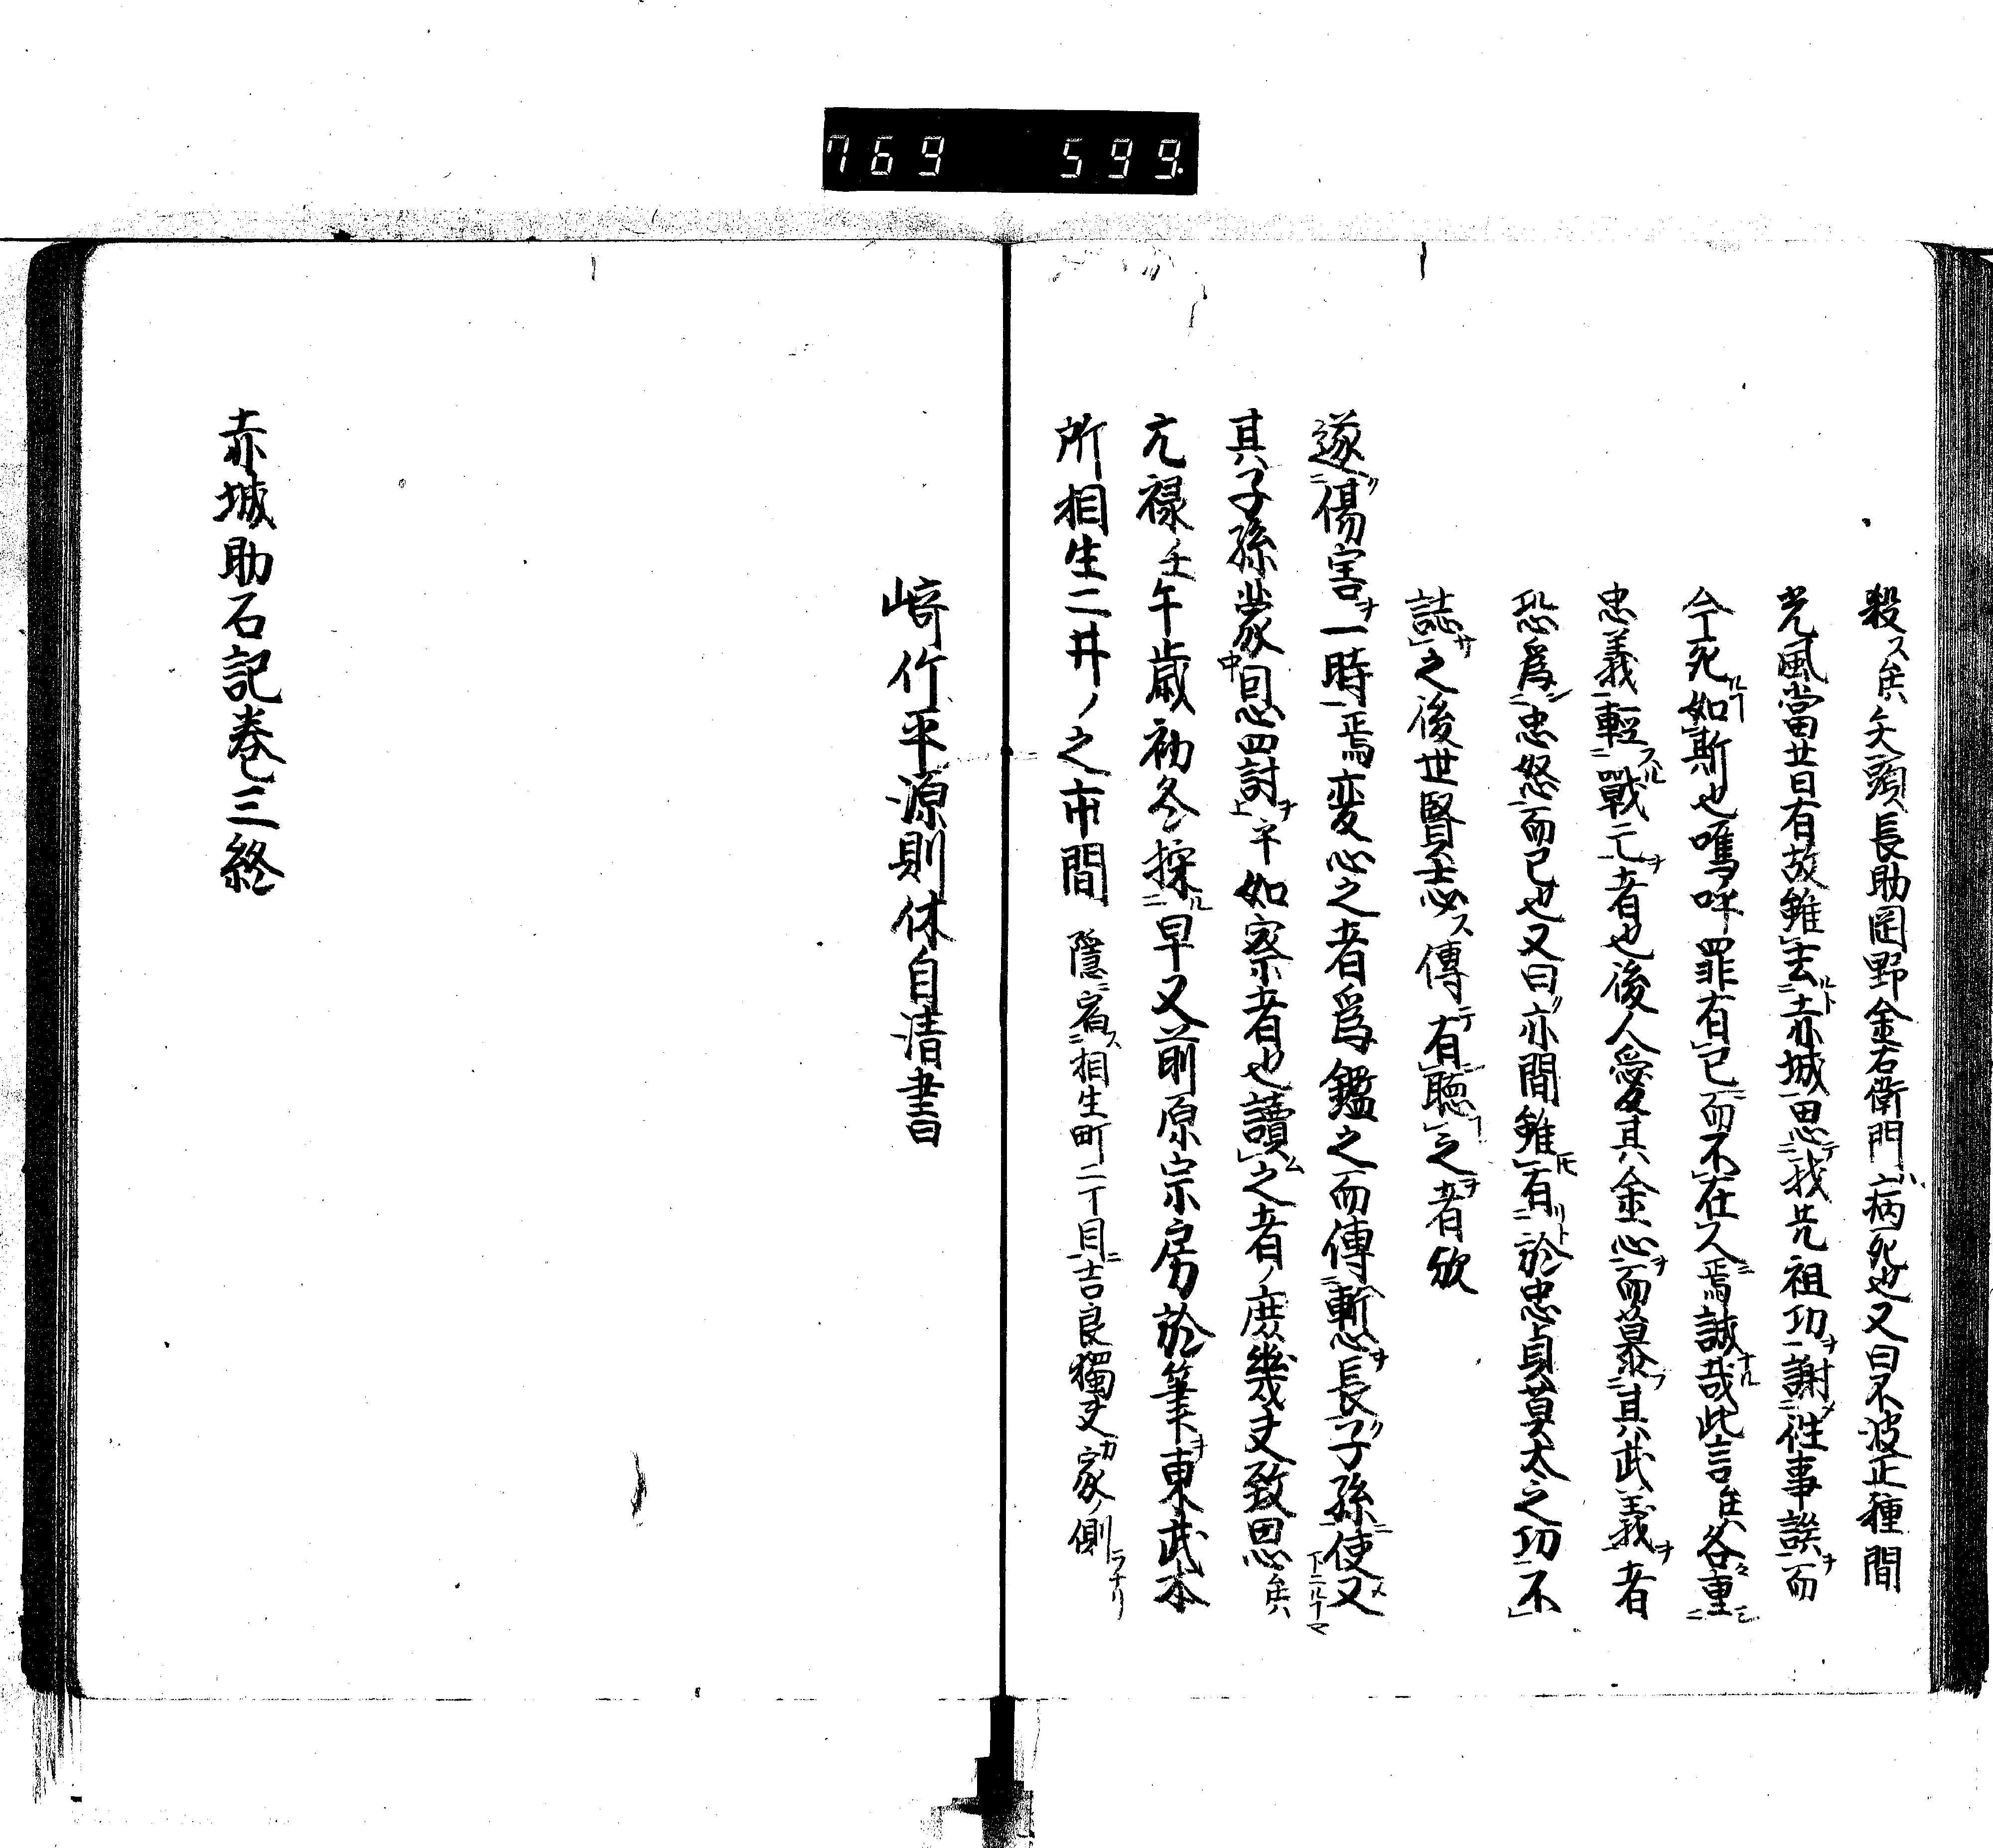 769 599.
殺ス矣矢頭長助岡野金右衛門ハ病死也又曰不波正種間
光風當廿日有故雖去ルト赤城思テ我先祖功ヲ謝メ往事談ヲ而
今死如斯也嗚呼罪有已而不在人焉誠哉此言矣各々重シ
忠義輕スル戰亡ヲ者也後人愛其金心ヲ而慕フ其武義ヲ者
恐為シ忠怒而已也又曰亦間雖𪜈有リト於忠貞莫太之功不
誌サ之後世賢士必ス傳テ有聴之ヲ者欤
遂傷害ヲ一時焉変心之者為鑑之而傳慙ヲ長リ子孫ニ使メ又
其子孫蒙恩四討ヲ乎如察者也讀ム之者ノ庶幾丈致思矣
元禄壬午歳初冬採ル早又前原宗房於筆下ヲ東武本
所相生二井ノ之市間 隠ニ宿ス相生町二丁目ニ吉良獨丈カ家ノ側ラナリ
﨑竹平源則休自清書
赤城助石記巻三終